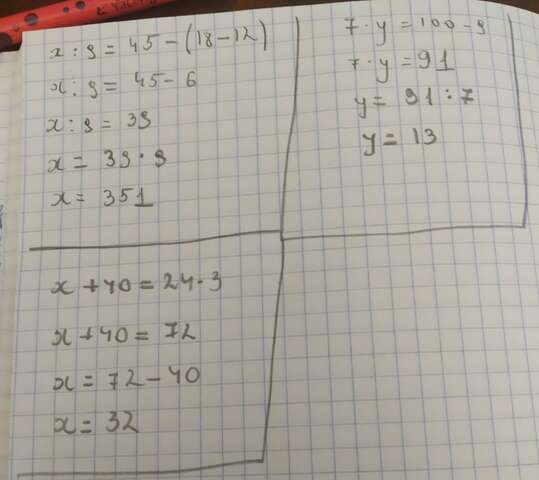 x : 9 = 45 - (18 - 12)
x : 9 = 45 - 6
x : 9 = 39
x = 39 · 9
x = 351
7 · y = 100 - 9
7 · y = 91
y = 91 : 7
y = 13
x + 40 = 24 · 3
x + 40 = 72
x = 72 - 40
x = 32